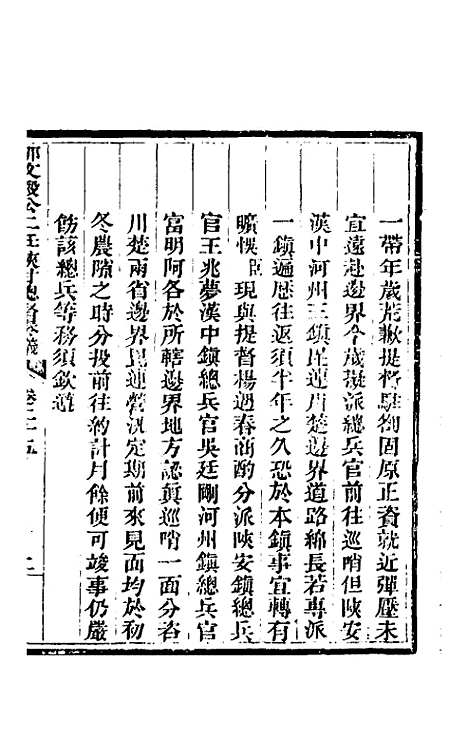 一帶年歲荒歉提督駐紮固原正資就近彈壓未
宜遠赴邊界今歲擬派總兵官前往巡哨但陝安
漢中河州三鎮毘連川楚邊界道路綿長若專派
一鎮遍歷往返須半年之久恐於本鎮事宜轉有
曠悞臣現與提督楊遇春商酌分派陝安鎮總兵
官王兆夢漢中鎮總兵官吳廷剛河州鎮總兵官
富明阿各於所轄邊界地方認眞巡哨一面分咨
川楚兩省邊界毘連營汛定期前來見面均於初
冬農隙之時分投前往約計月餘便可竣事仍嚴
飭該總兵等務須欽遵
那文毅公二任陝甘總督奏議 卷二十五